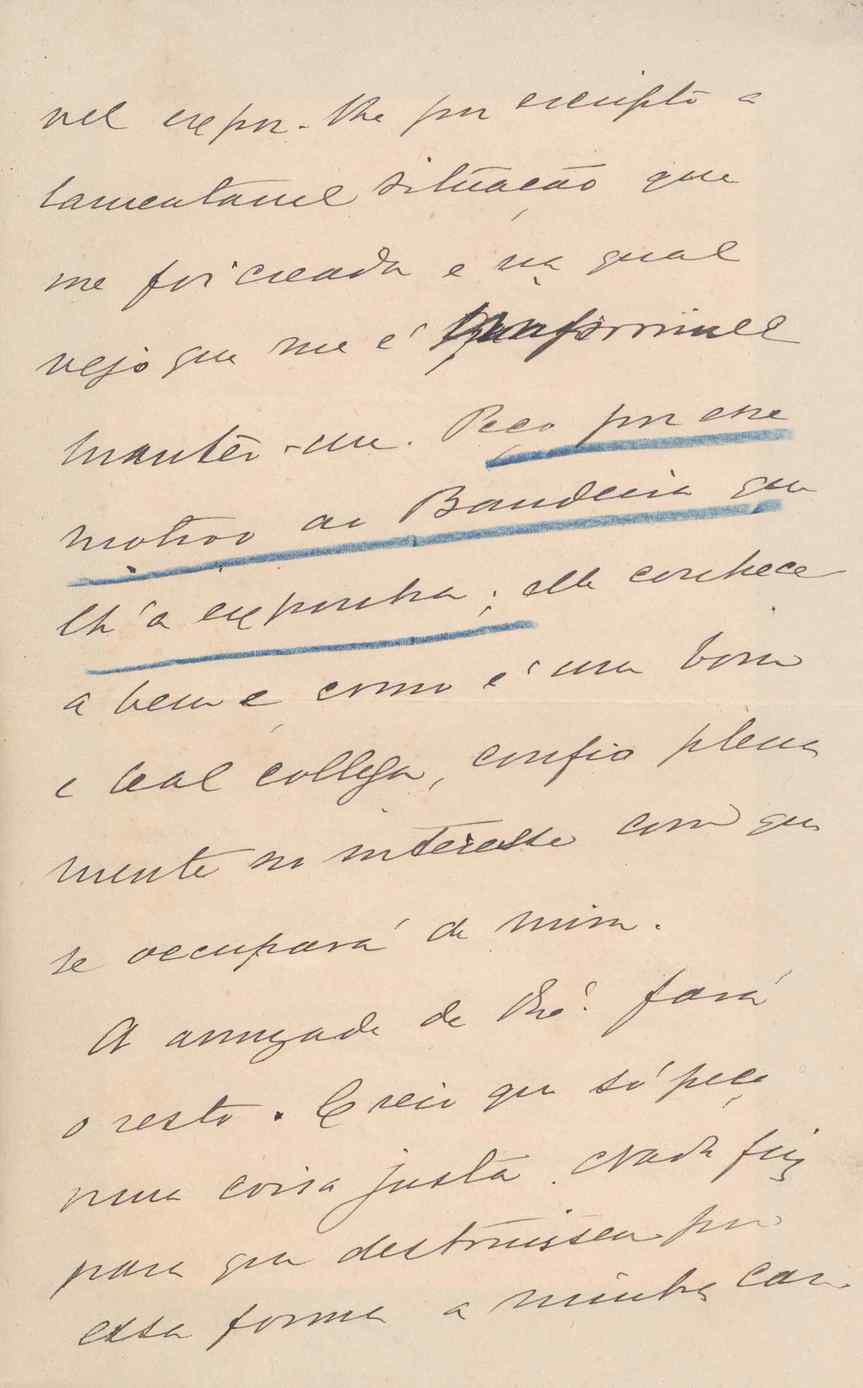 vel expor-lhe por escripto a
lamentavel situação que
me foi creada e na qual
vejo que me é impossivel
manter-me. Peço por esse
motivo ao Bandeira que
lh'a exponha; elle conhece
a bem e como é um bom
e leal collega, confio plena
mente no interesse com que
se occupará de mim.
A amizade de fará
o resto. Creio que só peço
uma coisa justa. Nada fiz
para que destruissem por
essa forma a minha car